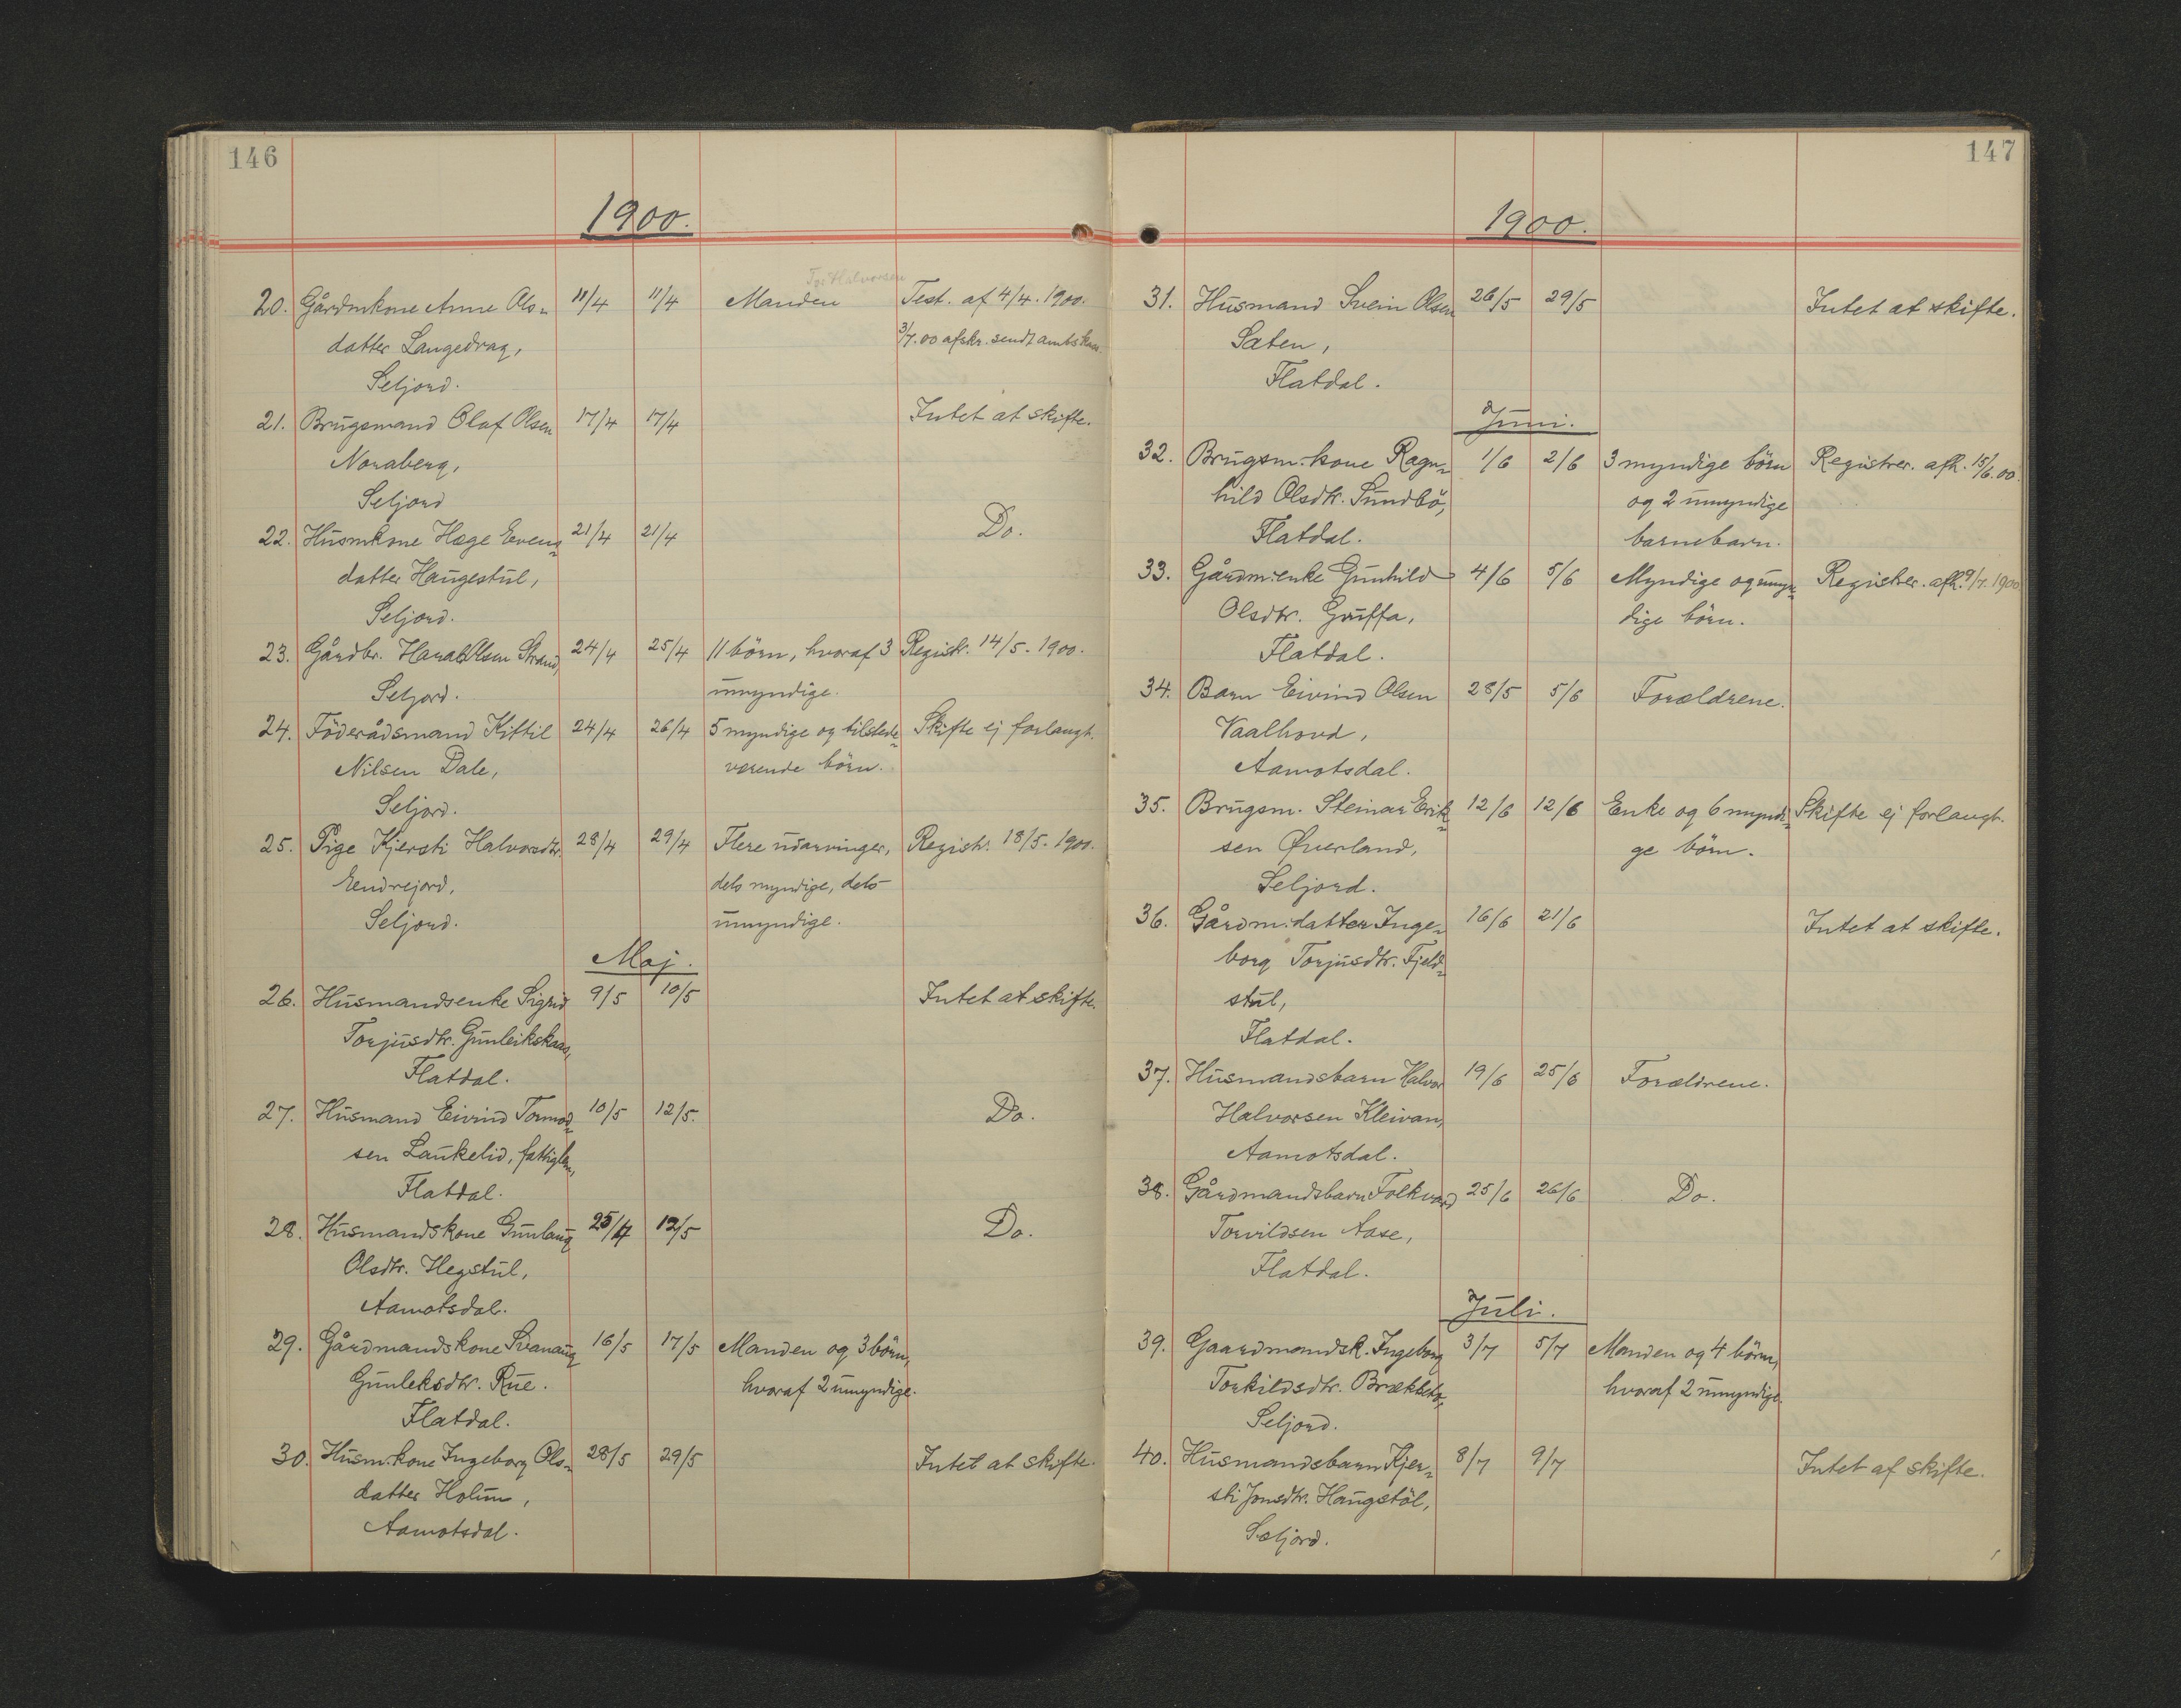 146
1900.
20. Gårdmkone Anne Ols- 11/4 11/4 Manden Test. af 4/4. 1900.
datter Langedrag, 3/7.00 afskr. sendt
Seljord.
21. Brugsmand Olaf Olsen 17/4 17/4 Intet at skifte.
Noraberg,
Seljord
22. Husmkone Hæge Evens- 21/4 21/4 Do.
datter Haugestul,
Seljord.
23. Gårdbr. Harald Olsen Strand, 24/4 25/4 11 börn, hvoraf 3 Registr. 14/5. 1900.
Seljord. umyndige.
24. Föderådsmand Kittil 24/4 26/4 5 myndige og tilstede- Skifte ej forlangt.
Nilsen Dale, værende börn.
Seljord.
25. Pige Kjersti Halvorsdtr. 28/4 29/4 Flere udarvinger, Registr. 18/5. 1900.
Eendrejord, dels myndige, dels
Seljord. umyndige.
Maj.
26. Husmandsenke Sigrid 9/5 10/5 Intet at skifte.
Torjusdtr. Gunleikskaas,
Flatdal.
27. Husmand Eivind Tormod- 10/5 12/5. Do.
sen Laukelid, fattiglem,
Flatdal.
28. Husmandskone Gunlaug 25/4 12/5 Do.
Olsdtr. Hegstul,
Aamotsdal.
29. Gårdmandskone Svanaug 16/5 17/5 Manden og 3 börn,
Gunleksdtr. Rue. hvoraf 2 umyndige.
Flatdal.
30. Husm.kone Ingeborg Ols- 28/5 29/5 Intet at skifte.
datter Holum,
Aamotsdal.
147
1900.
31. Husmand Svein Olsen 26/5 29/5 Intet at skifte.
Saten,
Flatdal.
Juni.
32. Brugsm.kone Ragn- 1/6 2/6 3 myndige börn Registrer. afh. 15/6.00.
hild Olsdtr. Sundbö, og 2 umyndige
Flatdal. barnebarn.
33. Gårdm.enke Gunhild 4/6 5/6 Myndige og umyn- Registrer. afh. 9/7. 1900
Olsdtr. Graffa, dige börn.
Flatdal.
34. Barn Eivind Olsen 28/5 5/6 Forældrene.
Vaalhovd,
Aamotsdal.
35. Brugsm. Steinar Erik- 12/6 12/6 Enke og 6 myndi- Skifte ej forlangt.
sen Øverland, ge börn.
Seljord.
36. Gårdm.datter Inge- 16/6 21/6 Intet at skifte.
borg Torjusdtr. Fjeld-
stul,
Flatdal.
37. Husmandsbarn Halvor 19/6 25/6 Forældrene.
Halvorsen Kleivan,
Aamotsdal.
38. Gårdmandsbarn Folkvard 25/6 26/6 Do.
Torvildsen Aase,
Flatdal.
Juli.
39. Gaardmandsk. Ingeborg 3/7 5/7 Manden og 4 börn,
Torkildsdtr. hvoraf 2 umyndige.
Seljord.
40. Husmandsbarn Kjer- 8/7 9/7 Intet af skifte.
sti Jonsdtr. Haugstöl,
Seljord.